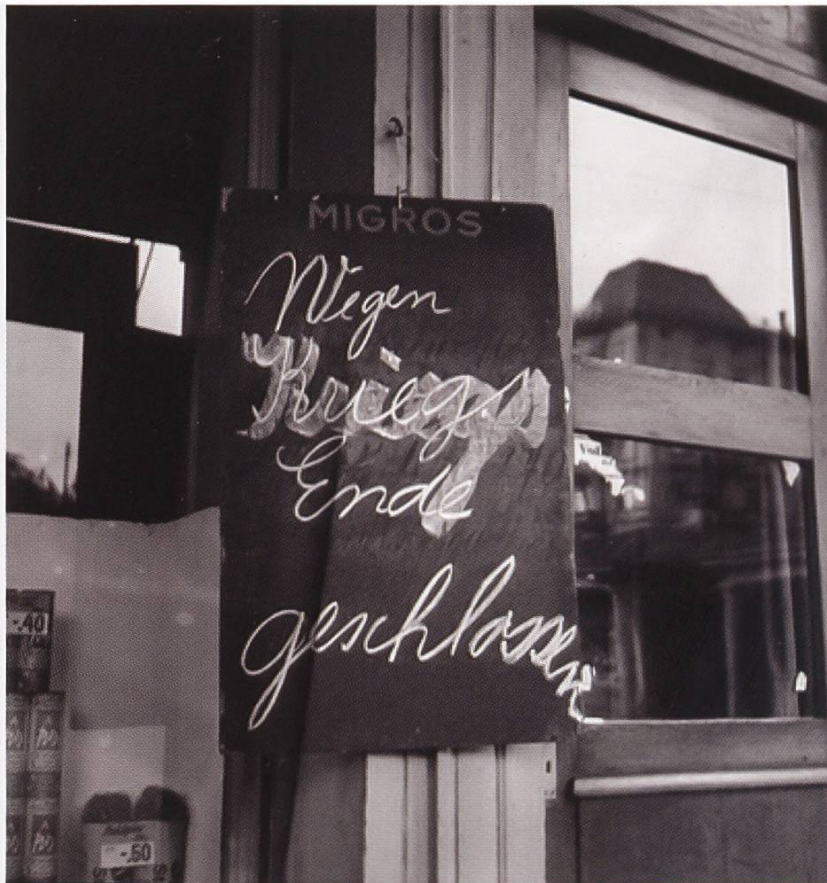 MIGROS
Wegen
Kriegs
Ende
geschlossen
-.40
-.50